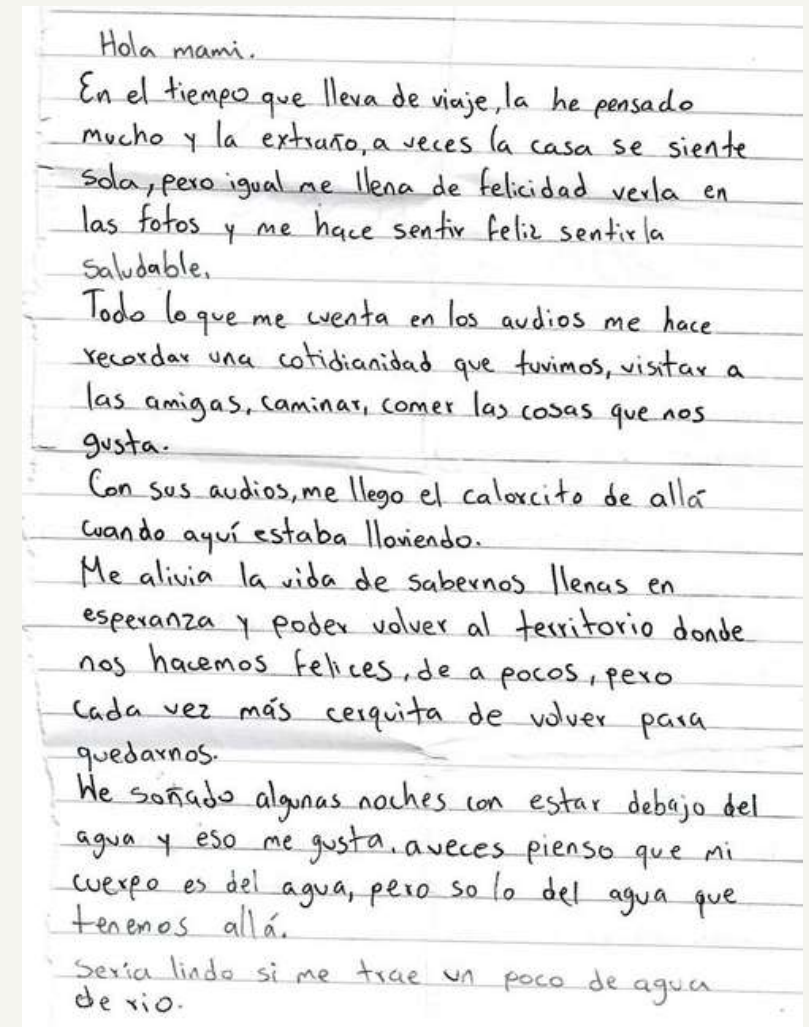 Hola mami.
En el tiempo que lleva de viaje, la he pensado
mucho y la extraño, a veces la casa se siente
sola, pero igual me llena de felicidad verla en
las fotos y me hace sentir feliz sentirla
saludable.
Todo lo que me cuenta en los audios me hace
recordar una cotidianidad que tuvimos, visitar a
las amigas, caminar, comer las cosas que nos
gusta.
Con sus audios, me llego el calorcito de allá
cuando aquí estaba lloviendo.
Me alivia la vida de sabernos llenas en
esperanza y poder volver al territorio donde
nos hacemos felices, de a pocos, pero
cada vez más cerquita de volver para
quedarnos.
He soñado algunas noches con estar debajo del
agua y eso me gusta. aveces pienso que mi
cuerpo es del agua, pero solo del agua que
tenemos allá.
Seria lindo si me trae un poco de agua
de rio.